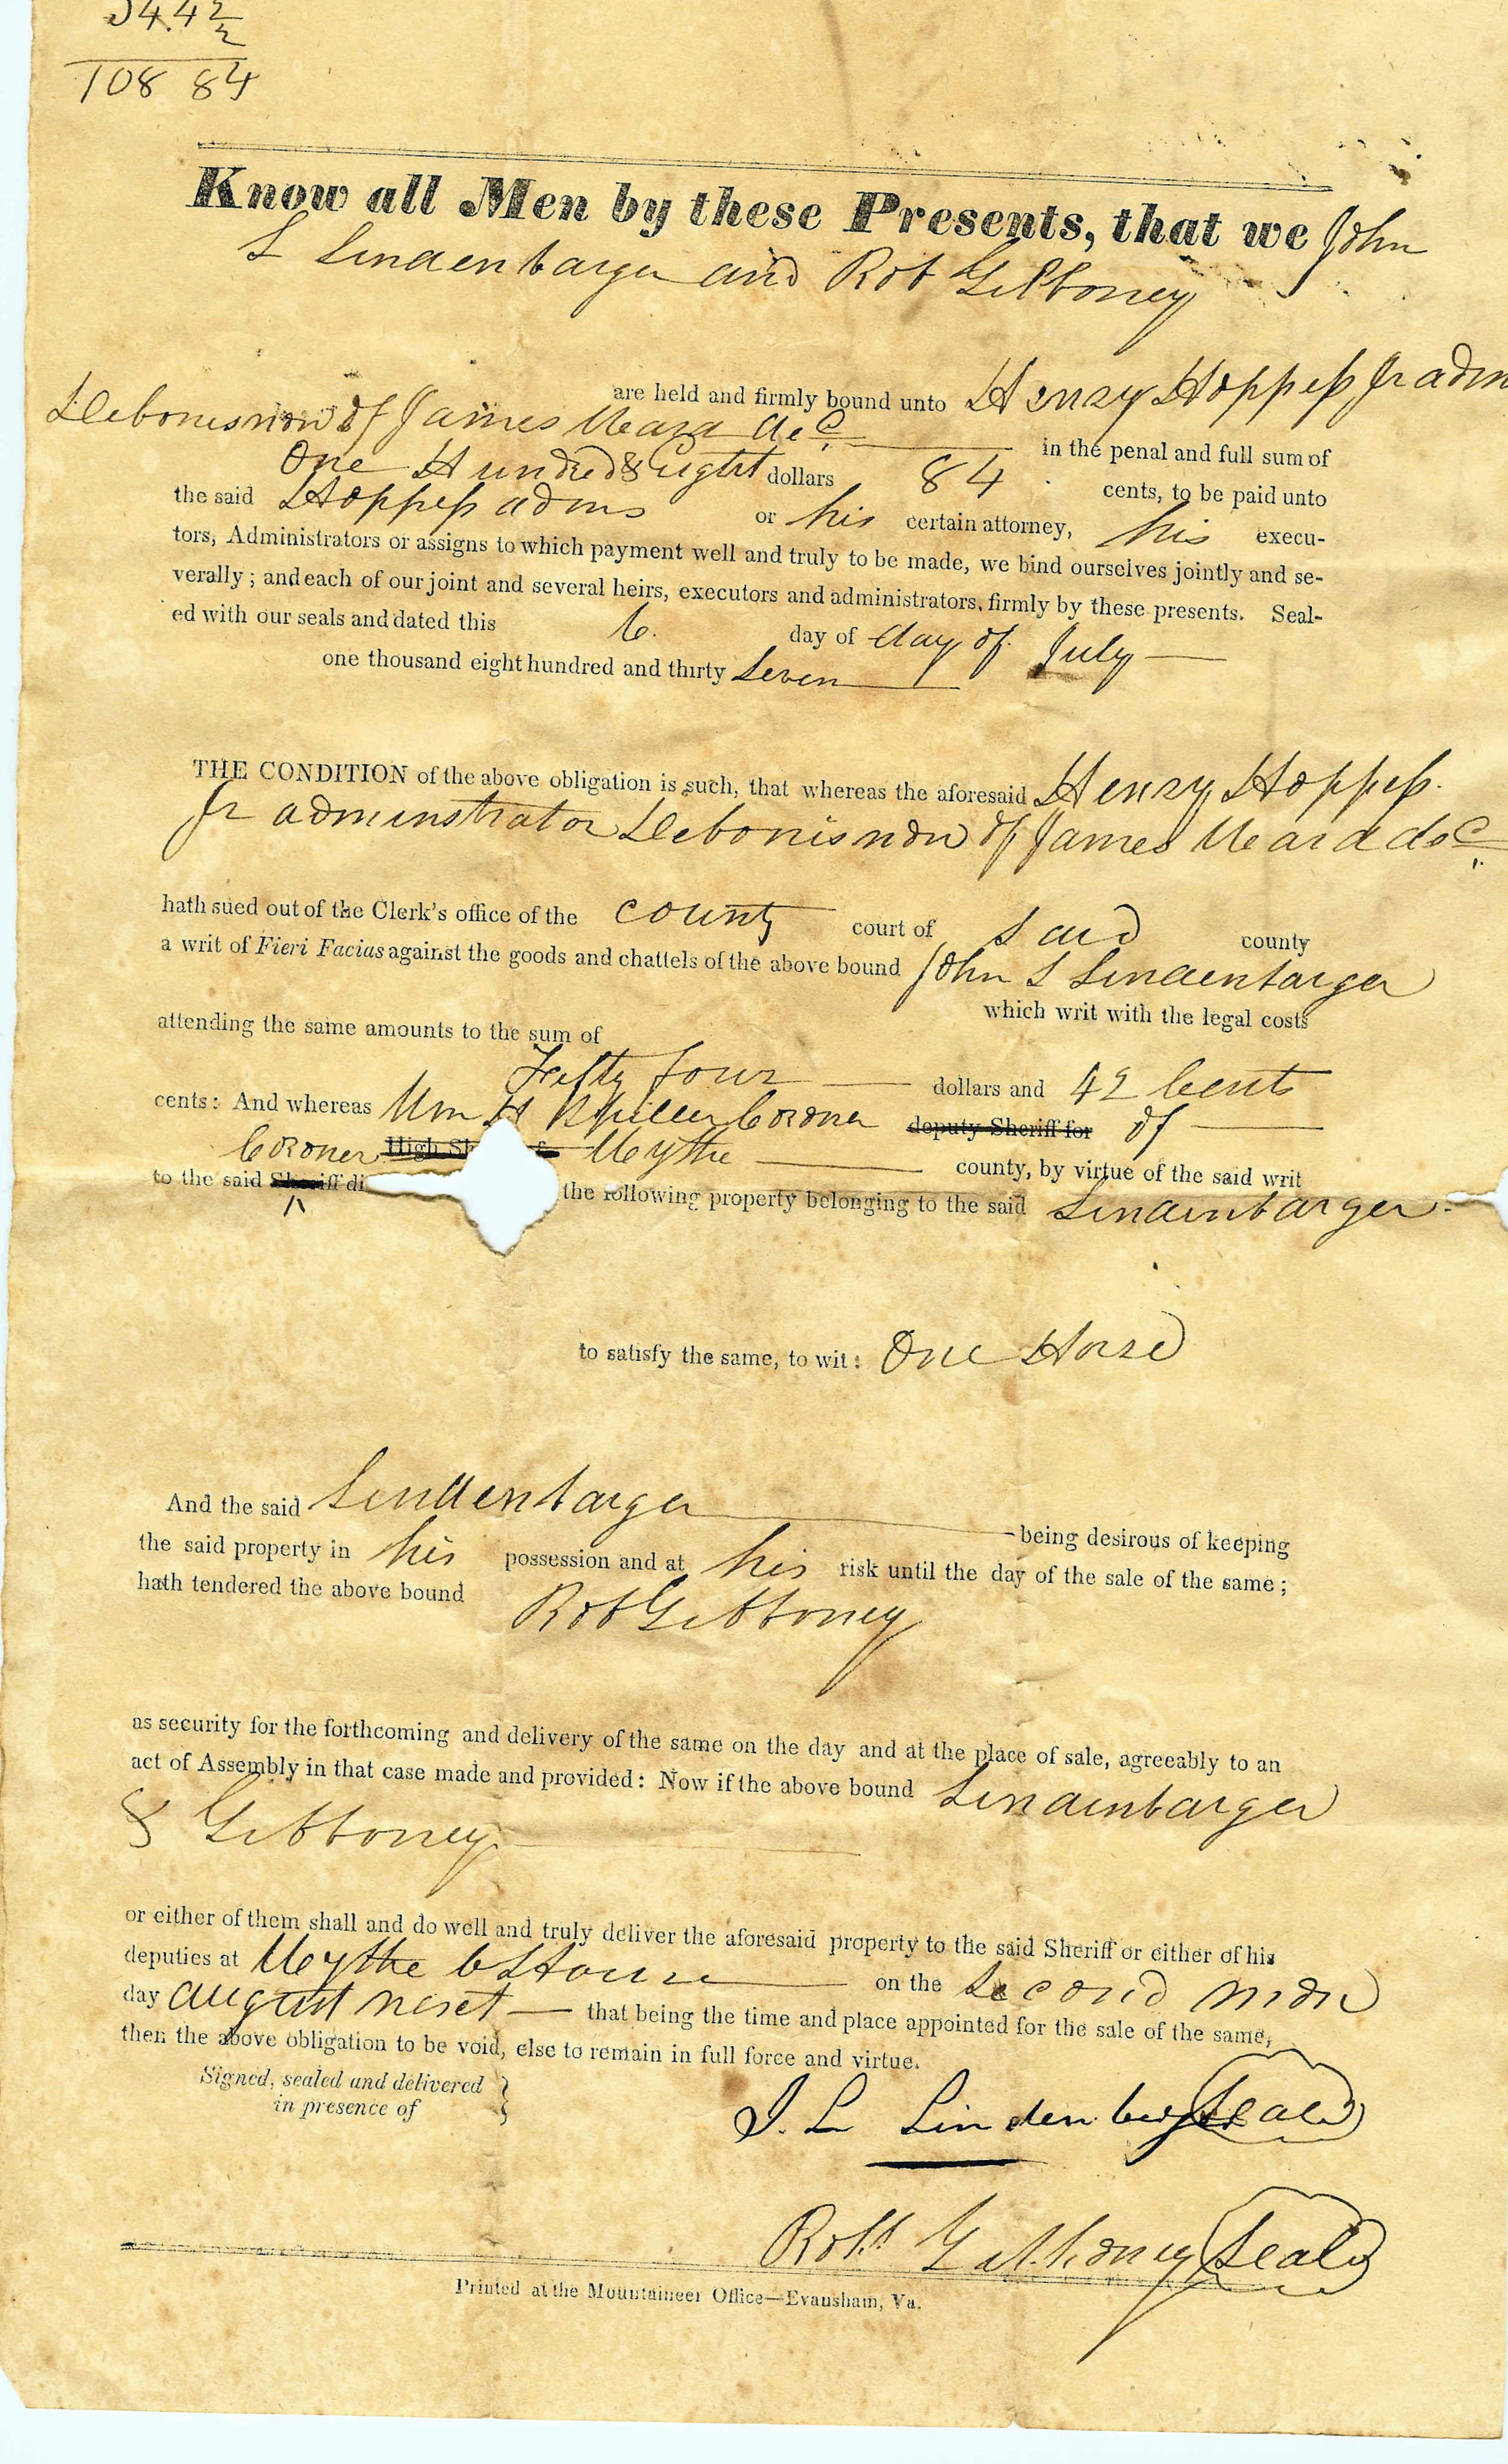 54.42
2
108 84
Know all Men by these Presents, that we John
L Lindenbarger and Rob Gibboney
are held and firmly bound unto Henry Hoppess Jr adm
Debonisnon of James Ward decd
in the penal and full sum of
One Hundred & Eight dollars 84 cents, to be paid unto
the said Hoppess adms or his certain attorney, his execu-
tors, Administrators or assigns to which payment well and truly to be made, we bind ourselves jointly and se-
verally; and each of our joint and several heirs, executors and administrators, firmly by these presents. Seal-
ed with our seals and dated this 6. day of day of July
one thousand eight hundred and thirty Seven
THE CONDITION of the above obligation is such, that whereas the aforesaid Henry Hoppess.
Jr adminstrator Debonisnon of James Ward decd
hath sued out of the Clerk's office of the county court of said county
a writ of Fieri Facias against the goods and chattels of the above bound John L Lindenbarger
which writ with the legal costs
attending the same amounts to the sum of
Fifty four dollars and 42 Cents
cents: And whereas Wm H Spiller Coroner deputy Sheriff for of
Coroner High Sh Wythe county, by virtue of the said writ
to the said Sheriff di the following property belonging to the said Lindenbarger.
to satisfy the same, to wit: One Horse
And the said Lindenbarger being desirous of keeping
the said property in his possession and at his risk until the day of the sale of the same;
hath tendered the above bound Rob Gibboney
as security for the forthcoming and delivery of the same on the day and at the place of sale, agreeably to an
act of Assembly in that case made and provided: Now if the above bound Lindenbarger
& Gibboney
or either of them shall and do well and truly deliver the aforesaid property to the said Sheriff or either of his
deputies at Wythe C House on the Second mon
day august next that being the time and place appointed for the sale of the same,
then the above obligation to be void, else to remain in full force and virtue.
Signed, sealed and delivered
in presence of
J. L Lindenberger Seal
Robt Gibboney Seal
Printed at the Mountaineer Office—Evansham, Va.